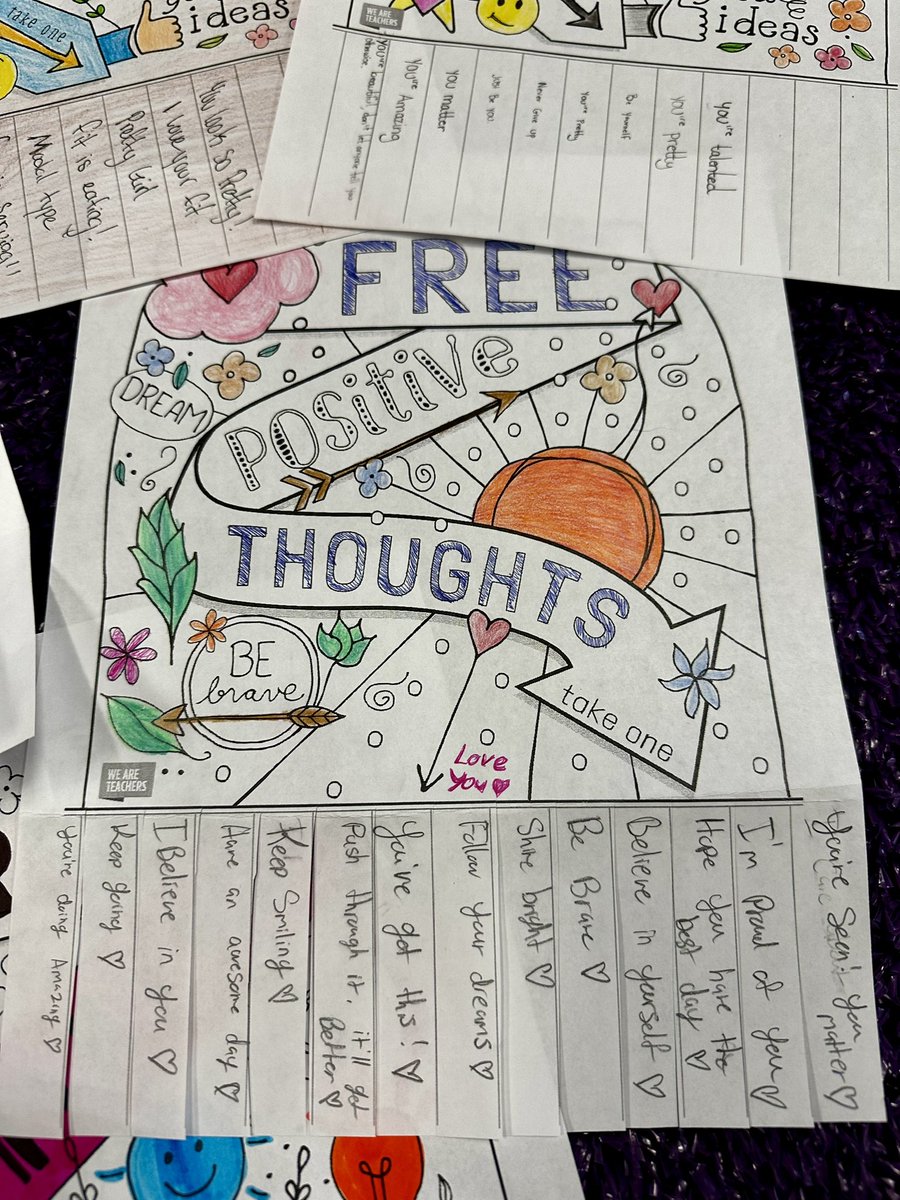 take one
ideas
WE ARE
TEACHERS
ideas
You look so Pretty!
I love your fit
Pretty Girl
Fit is eating!
Modal type
serving!!
You're beautiful, don't let anyone tell you
otherwise
You're Amazing
You matter
Just Be You
Never Give up
You're Pretty
Be Yourself
You're Pretty
You're talented
FREE
Positive
DREAM
THOUGHTS
BE
brave
take one
Love
You
WE ARE
TEACHERS
You're doing Amazing
Keep going
I Believe in you
Have an awesome day
Keep Smiling
Push through it, it'll get
Better
You've got this!
Follow your dreams
Shine bright
Be Brave
Believe in yourself
Hope you have the
best day
I'm proud of you
You're Seen! you
matter